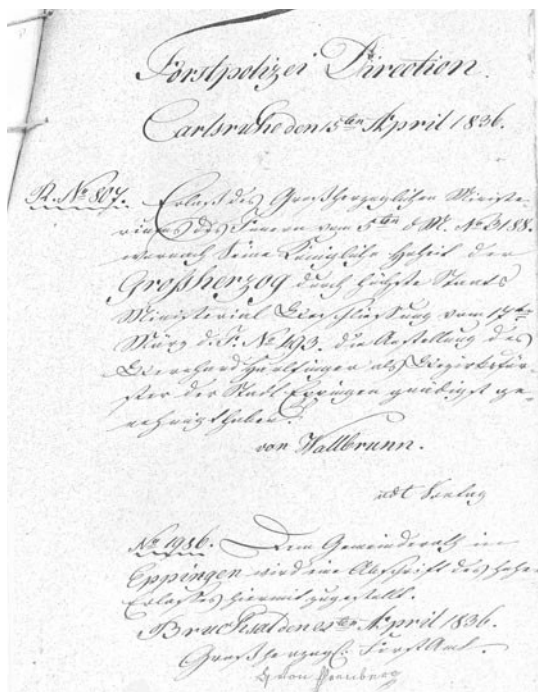 Forstpolizei Direction.
Carlsruhe den 15ten April 1836.
R. No 807. Erlaß des Großherzoglichen Ministe-
riums des Innern vom 5ten d. M. No 3188.
wornach Seine Königliche Hoheit der
Großherzog durch höchste Staats
Ministerial Entschließung vom 17ten
März d. J. No 493. die Anstellung des
als Bezirksför-
ster der Stadt Eppingen gnädigst ge-
nehmigt haben.
von Wallbrunn.
vdt
No 1986. Dem Gemeinderath in
Eppingen wird eine Abschrift des hohen
Erlasses hiermit zugestellt.
Bruchsal den April 1836.
Großherzogl. Forst Amt.
von